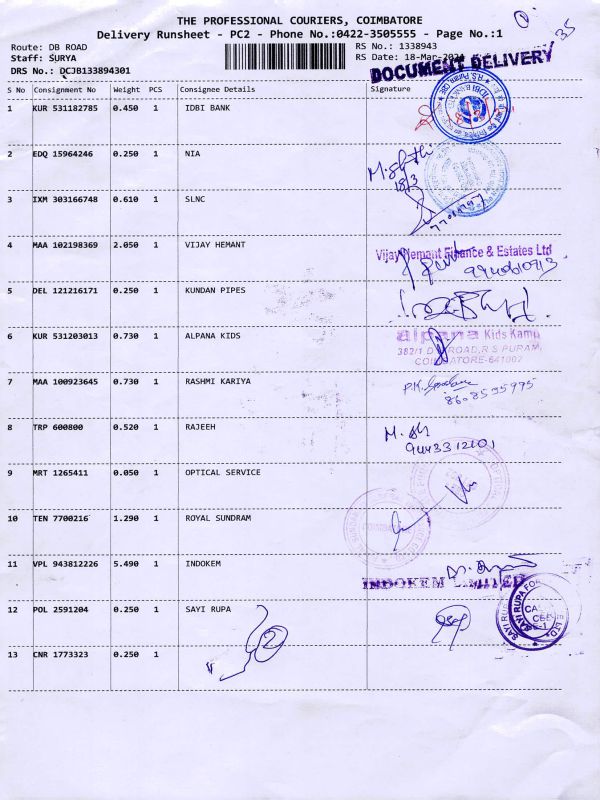 THE PROFESSIONAL COURIERS, COIMBATORE
Delivery Runsheet - PC2 - Phone No.:0422-3505555 - Page No.:1
Route: DB ROAD
RS No.: 1338943
35
Staff: SURYA
RS Date: 18-Mar-2024
DRS No.: DCJB133894301
DOCUMENT DELIVERY
S No Consignment No Weight PCS Consignee Details Signature
1 KUR 531182785 0.450 1 IDBI BANK
2 EDQ 15964246 0.250 1 NIA
18/3
3 IXM 303166748 0.610 1 SLNC
4 MAA 102198369 2.050 1 VIJAY HEMANT
Vijay Hemant Finance & Estates Ltd
5 DEL 121216171 0.250 1 KUNDAN PIPES
6 KUR 531203013 0.730 1 ALPANA KIDS
alpana Kids Kamp
382/1 D B ROAD, R S PURAM,
COIMBATORE-641002
7 MAA 100923645 0.730 1 RASHMI KARIYA
8608595995
8 TRP 600800 0.520 1 RAJEEH
9443312101
9 MRT 1265411 0.050 1 OPTICAL SERVICE
10 TEN 7700216 1.290 1 ROYAL SUNDRAM
11 VPL 943812226 5.490 1 INDOKEM
INDOKEM LIMITED
12 POL 2591204 0.250 1 SAYI RUPA
SAYI RUPA FOR
13 CNR 1773323 0.250 1